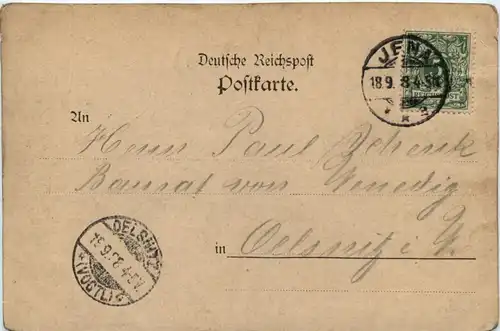 Deutsche Reichspost
Postkarte.
JENA
18.9.
An
Herrn Paul Schenk
Baurat von Venedig
in Oelsnitz i. V.
OELSNITZ
(VOGTL.)